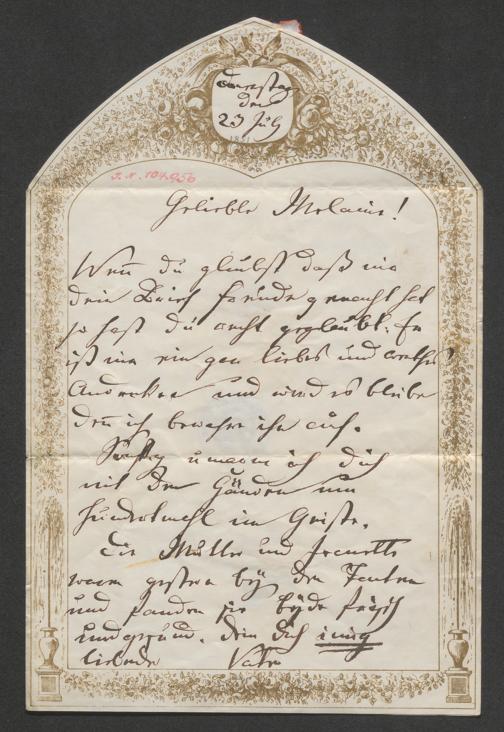 Donnerstag
den
23 July
J. N. 104.956
Geliebte Melanie!
Wenn du glaubst daß mir
dein Brief Freude gemacht hat
so hast du recht geglaubt. Er
ist mir ein gar liebes und werthes
Andenken und wird es bleiben
denn ich bewahre ihn auf.
umarm ich dich
mit den Händen um
hundertmahl im Geiste.
Die Mutter und
waren gestern bey der Tanten
und fanden sie beyde frisch
und gesund. Dein dich innig
liebender Vater